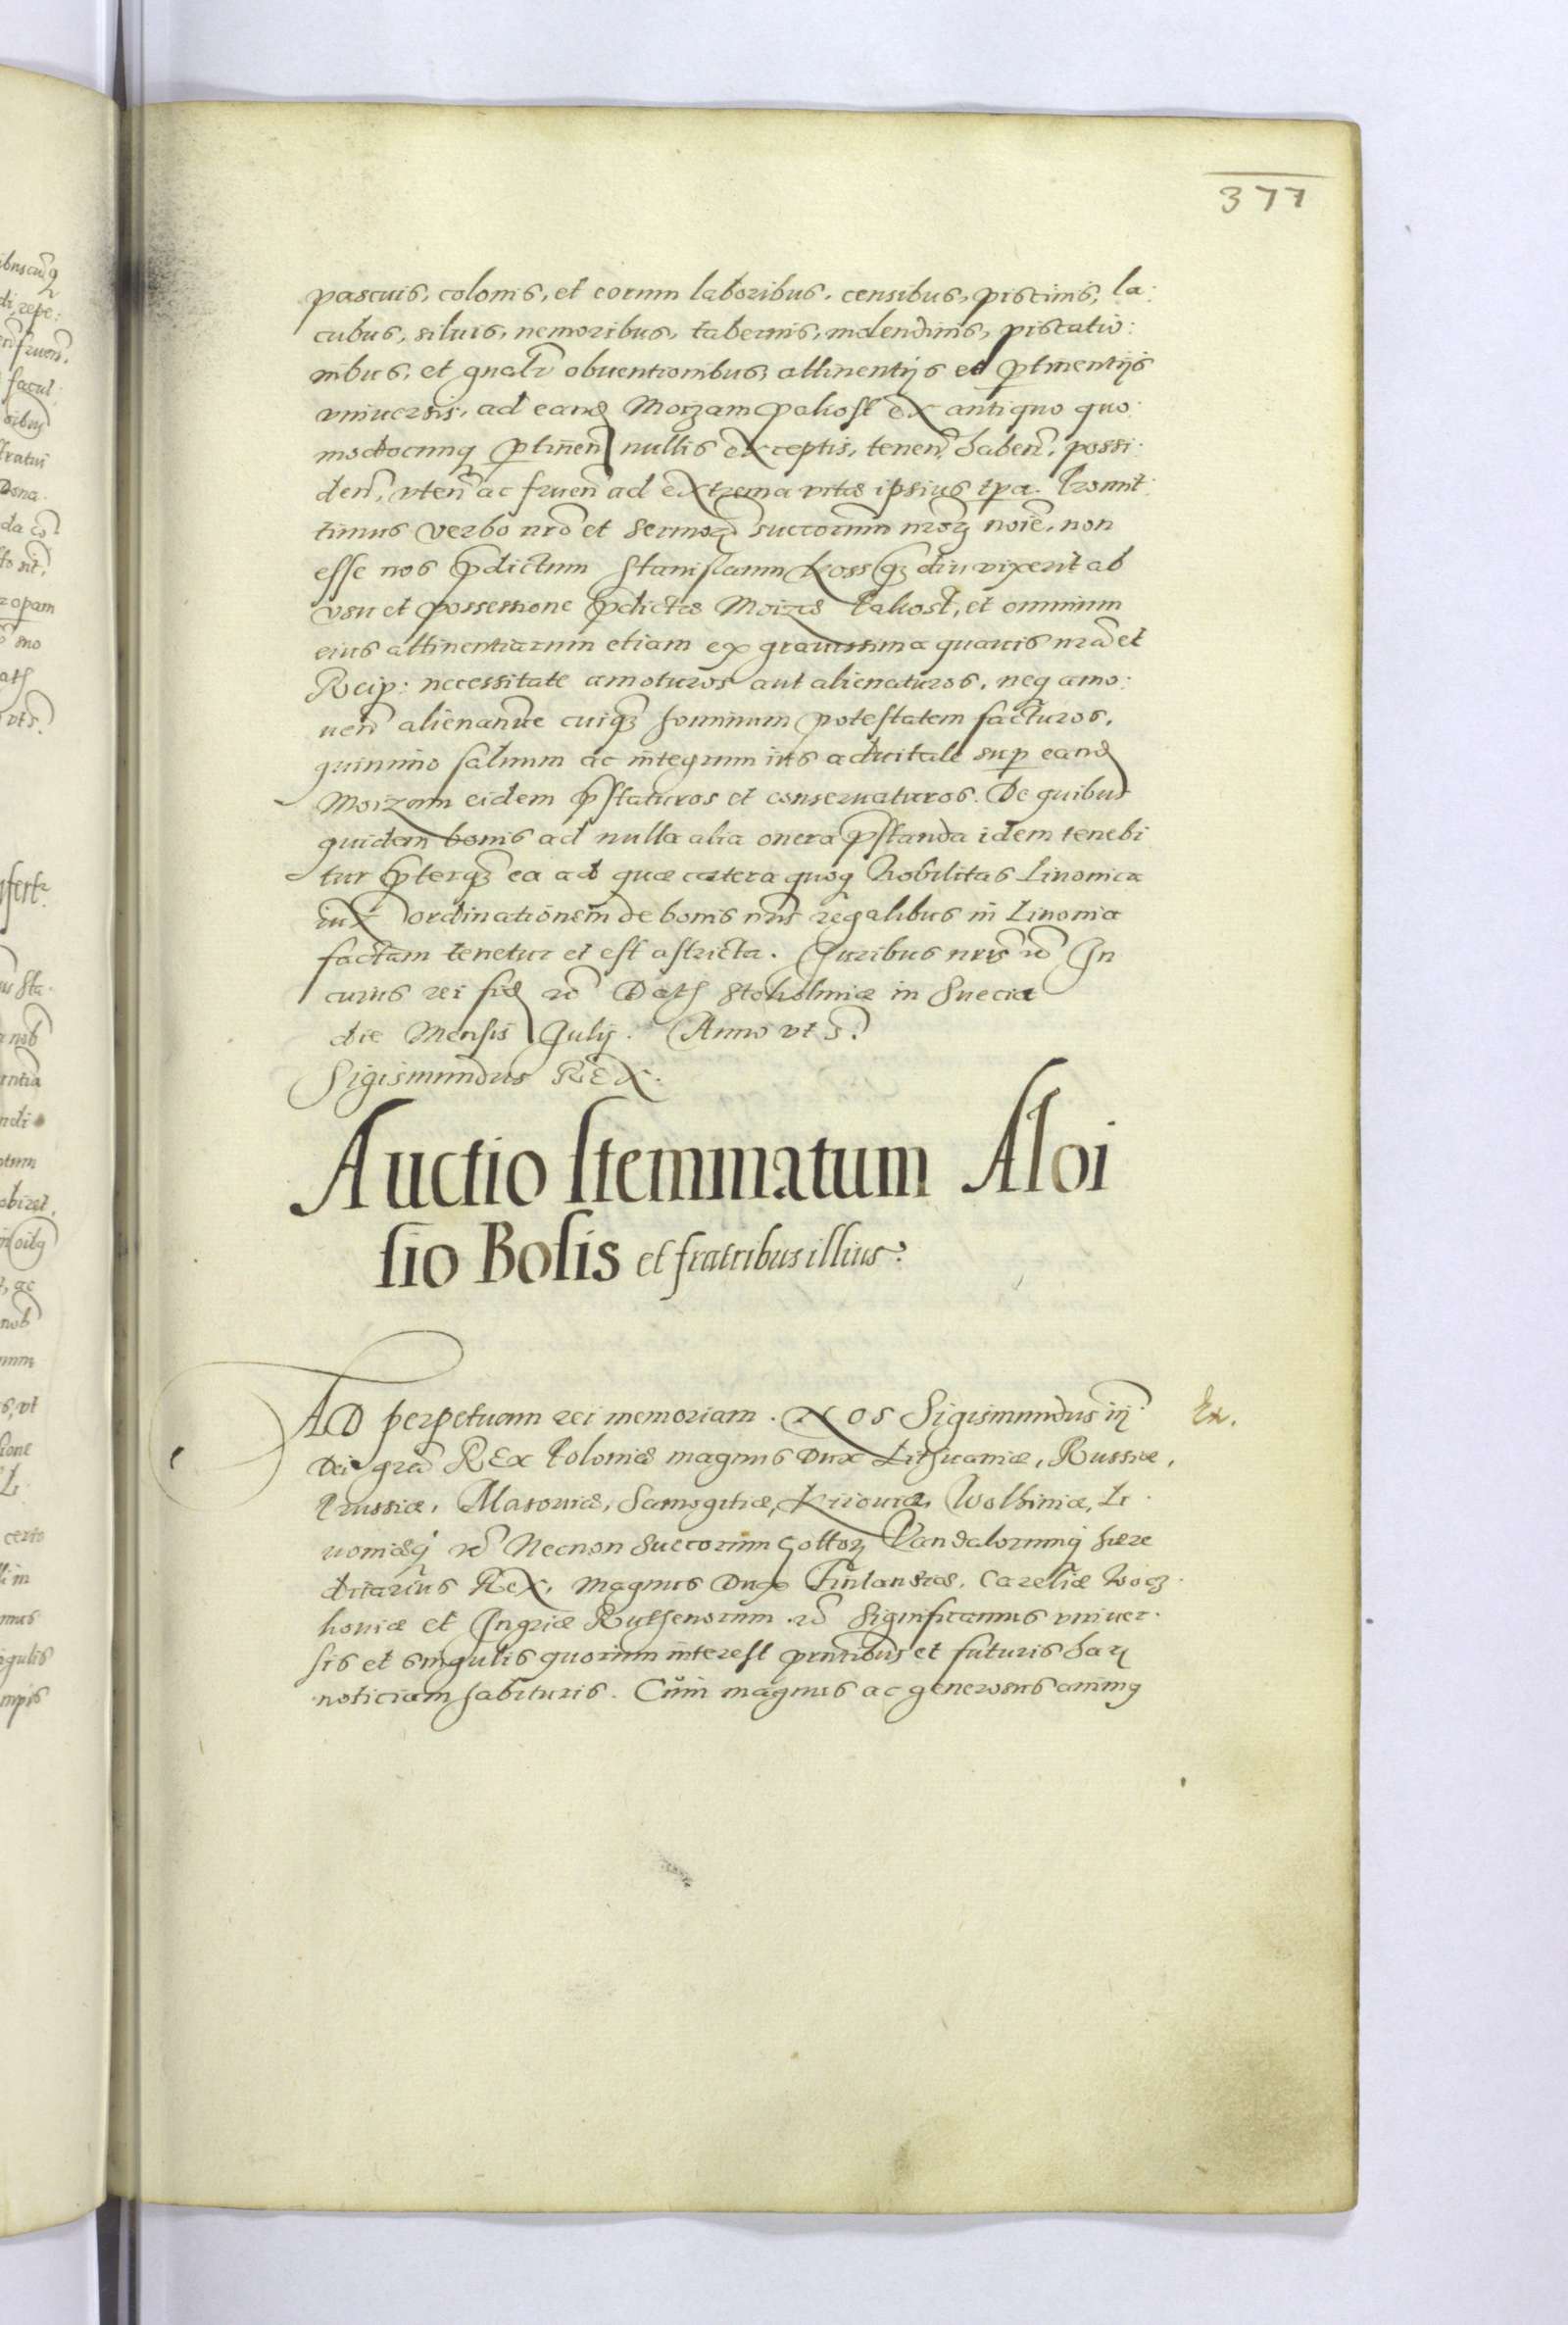 377
pascuis, colonis, et eorum laboribus, censibus, piscinis, la:
cubus, siluis, nemoribus, tabernis, molendinis, piscatio:
nibus, et gnalr obuentionibus, attinentijs et ptinentijs
vniuersis, ad eand Moizam Pakost ex antiquo quo:
modocunq ptinen nullis exceptis, tenen, haben, possi:
den, vten ac fruen ad extrema vitæ ipsius tpa. Promit:
timus verbo nro et Sermor succorum nror noie, non
esse nos pdictum Stanislaum Koss qz diu vixerit ab
vsu et possessione pdictæ Moizæ Pakost, et omnium
eius attinentiarum etiam ex grauissima quauis nra et
Reip: necessitate amoturos aut alienaturos, neq amo:
uen alienanve cuiqz hominum potestatem facturos,
quinimo saluum ac integrum ius aduitale sup eand
Moizam eidem pstaturos et conseruaturos. De quibus
quidem bonis ad nulla alia onera pstanda idem tenebi
tur pterqz ea ad quæ cætera quoq Nobilitas Liuonica
iux ordinationem de bonis nris regalibus in Liuonia
factam tenetur et est astricta. Juribus nris rc In
cuius rei fid rc Dath Stokolmiæ in Suecia
die Mensis Julij. Anno vt S.
Sigismundus REX.
Auctio stemmatum Aloi
sio Bosis et fratribus illius.
AD perpetuam rei memoriam. NOS Sigismundus iij
Ex.
Dei gra REx Poloniæ magnus Dux Lithuaniæ, Russiæ,
Prussiæ, Masouiæ, Samogitiæ, Kiiouiæ, Wolhiniæ, Li:
uoniæq rc Necnon Suecorum Gottor Vandalorumq hære
ditarius Rex, Magnus Dux Finlandiæ, Careliæ Wocz:
kouiæ et Ingriæ Ruthenorum rc Significamus vniuer:
sis et singulis quorum interest pntibus et futuris har
noticiam habituris. Cum magnus ac generosus animq